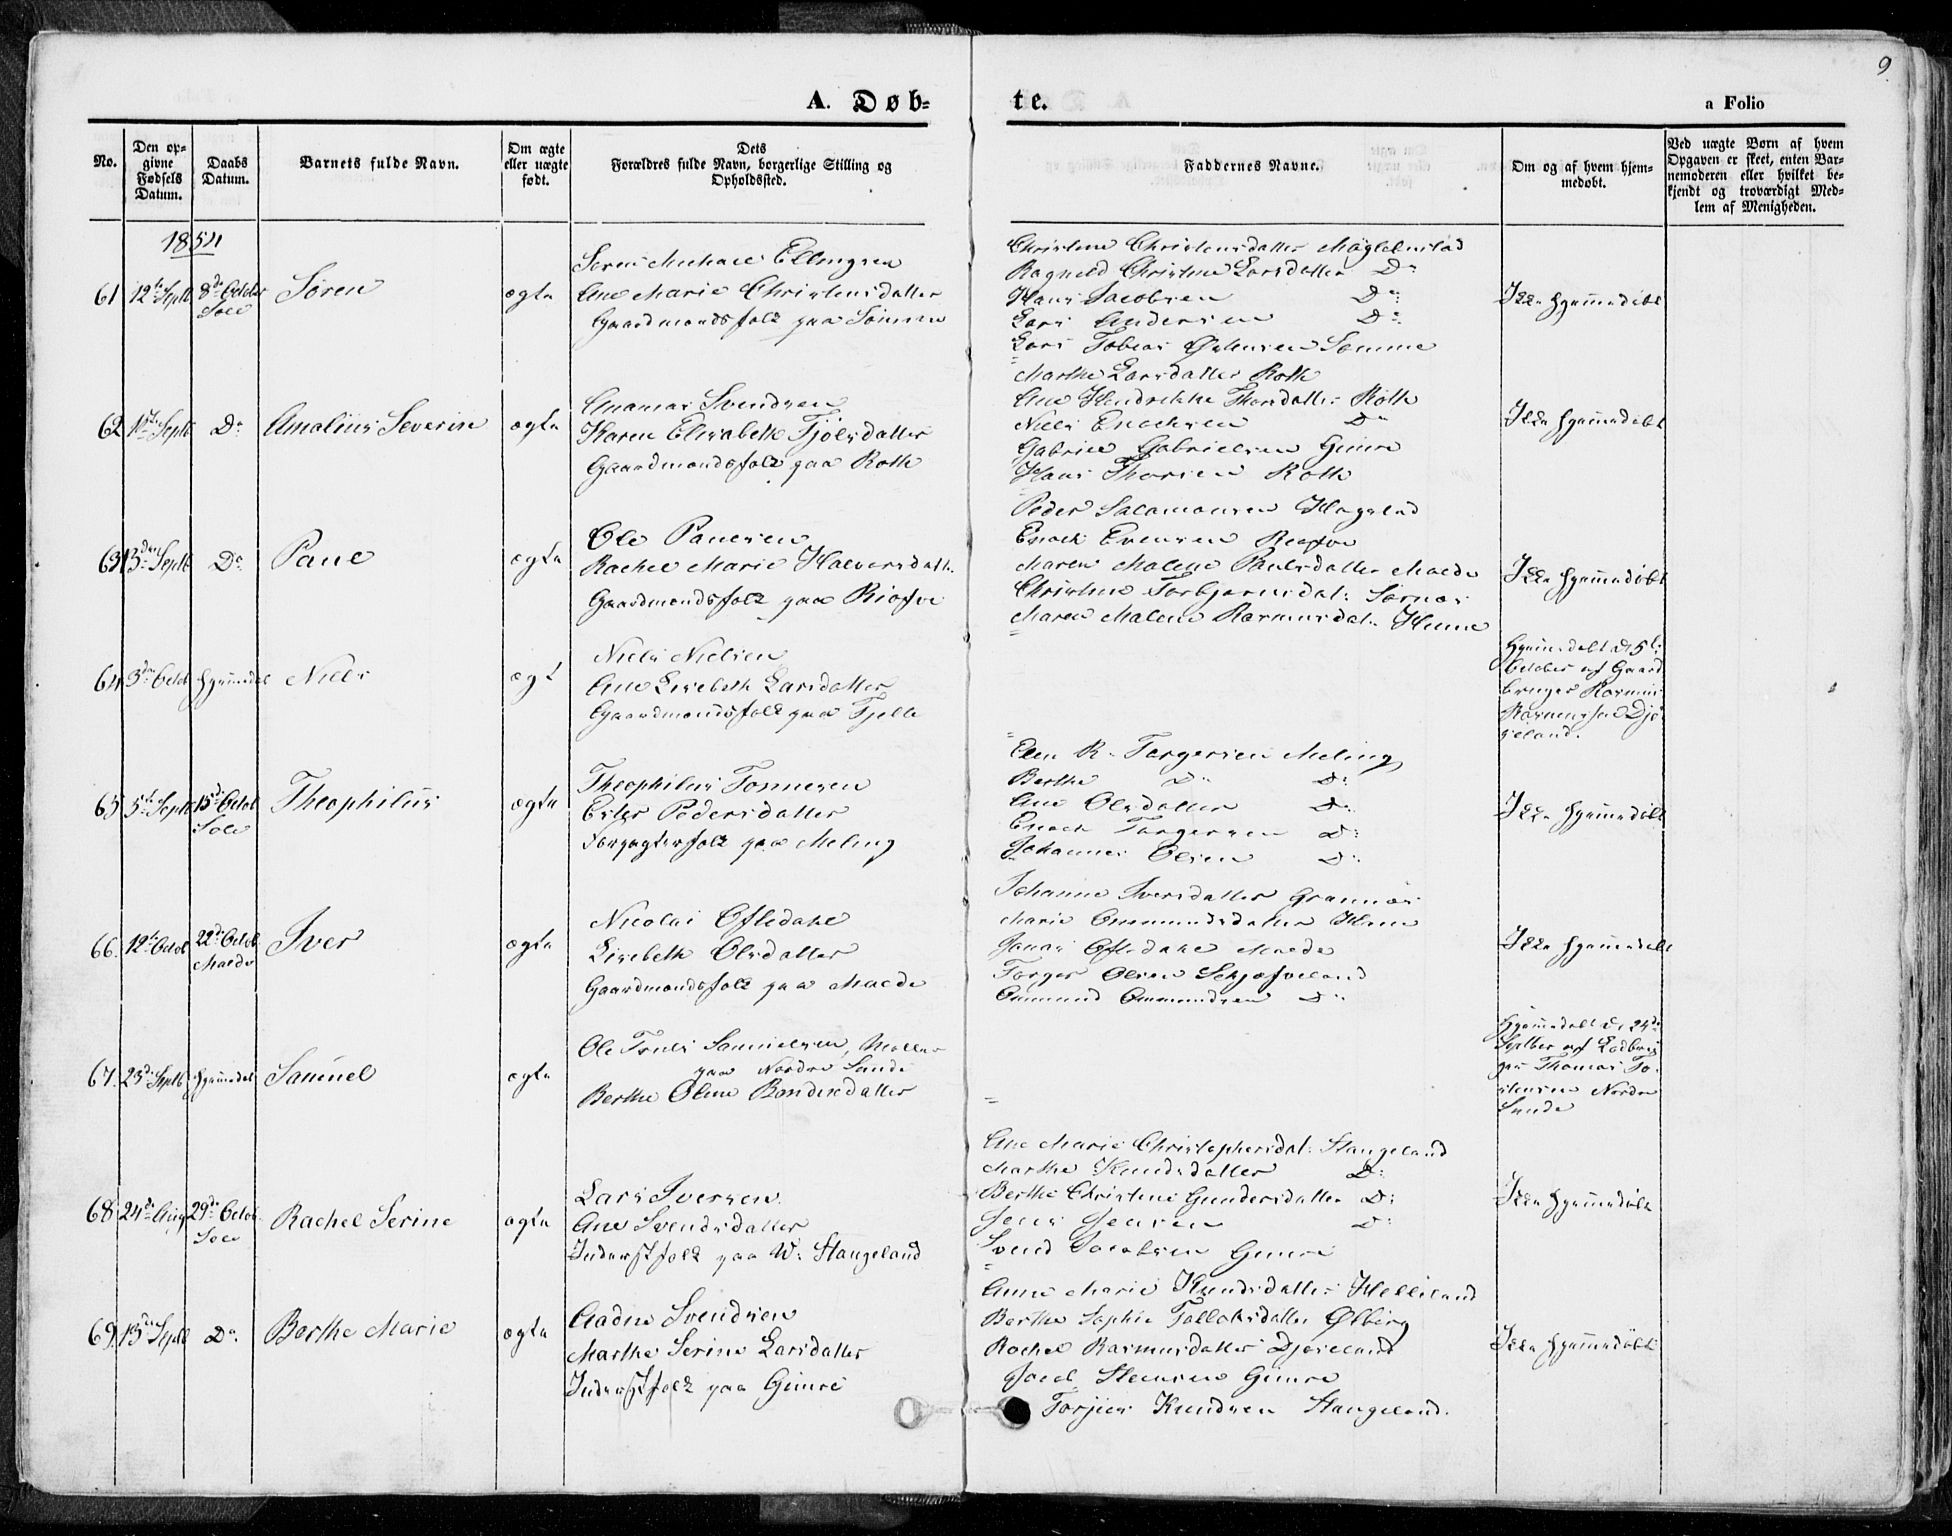 9.
A. Døb=
te.
a Folio
No.
Den op-
givne
Fødsels
Datum.
Daabs
Datum.
Barnets fulde Navn.
Om ægte
eller uægte
født.
Dets
Forældres fulde Navn, borgerlige Stilling og
Opholdssted.
Faddernes Navne.
Om og af hvem hjem-
medøbt.
Ved uægte Børn af hvem
Opgaven er skeet, enten Bar-
nemoderen eller hvilket be-
kjendt og troværdigt Med-
lem af Menigheden.
1854
61 12te Septb 8de October
Sole
Søren
ægte
Søren Michael Ellingsen
Ane Marie Christensdatter
Gaardmandsfolk paa Sømme
Christine Christensdatter
Ragnild Christine Larsdatter Do
Hans Jacobsen Do
Lars Andersen Do
Lars Tobias Sømme
Ikke hjemmedøbt
62 Septb Do
Amalius Severin
ægte
Svendsen
Karen Elisabeth Fjølsdatter
Gaardmandsfolk paa Roth
Marthe Larsdatter Roth
Ane Hendrikke Thorsdatter Roth
Niels Enochsen Do
Gabriel Gabrielsen Gimre
Hans Thorsen Roth
Ikke hjemmedøbt
63 13de Septb Do
Paul
ægte
Ole Paulsen
Rachel Marie Halvorsdatt:
Gaardmandsfolk paa
Peder Salamonsen Hogstad
Enoch Evensen
Maren Malene Paulsdatter Malde
Christine Torbjørnsdat: Sørnæs
Maren Malene Rasmusdat:
Ikke hjemmedøbt
64 3de Octob hjemmedøbt
Niels
ægte
Niels Nielsen
Ane Lisebeth Larsdatter
Gaardmandsfolk paa Tjelte
Hjemmedøbt d. 5te
October af Gaard
bruger Rasmus
Rasmussen Djø
seland.
65 5te Septb 15de Octob
Sole
Theophilus
ægte
Theophilus Tønnesen
Ester Pedersdatter
Forpagterfolk paa Meling
Elen R. Torgersen Meling
Berthe Do Do
Ane Olsdatter Do
Enoch Torgersen Do
Johannes Olsen Do
Ikke hjemmedøbt
66. 12te Octob 22de Octob
Malde
Iver
ægte
Nicolai Oftedahl
Lisebeth Olsdatter
Gaardmandsfolk paa Malde
Johanne Iversdatter Grannæs
Marie Ommundsdatter
Jonas Oftedahl Malde
Torger Olsen
Ommund Ommundsen Do
Ikke hjemmedøbt
67. 23de Septb hjemmedøbt
Samuel
ægte
Ole Truls Samuelsen, Møller
paa Nordre Sunde
Berthe Oline
Hjemmedøbt d. 24de
Septber af
Thomas To-
Nordre
Sunde
68 24de Aug 29de Octob
Sole
Rachel Serine
ægte
Lars Iversen
Ane Svendsdatter
Inderstfolk paa W: Stangeland
Ane Marie Christophersdat: Stangeland
Marthe Knudsdatter Do
Berthe Christine Gundersdatter Do
Jens Jensen Do
Svend Jacobsen Gimre
Ikke hjemmedøbt
69. 13de Septb Do.
Berthe Marie
ægte
Aadne Svendsen
Marthe Serine Larsdatter
Inderstfolk paa Gimre
Anne Marie Knudsdatter Helleland
Berthe Sophie Tollaksdatter Ølberg
Rachel Rasmusdatter Djøseland
Jacob Steensen Gimre
Torjus Knudsen Stangeland.
Ikke hjemmedøbt